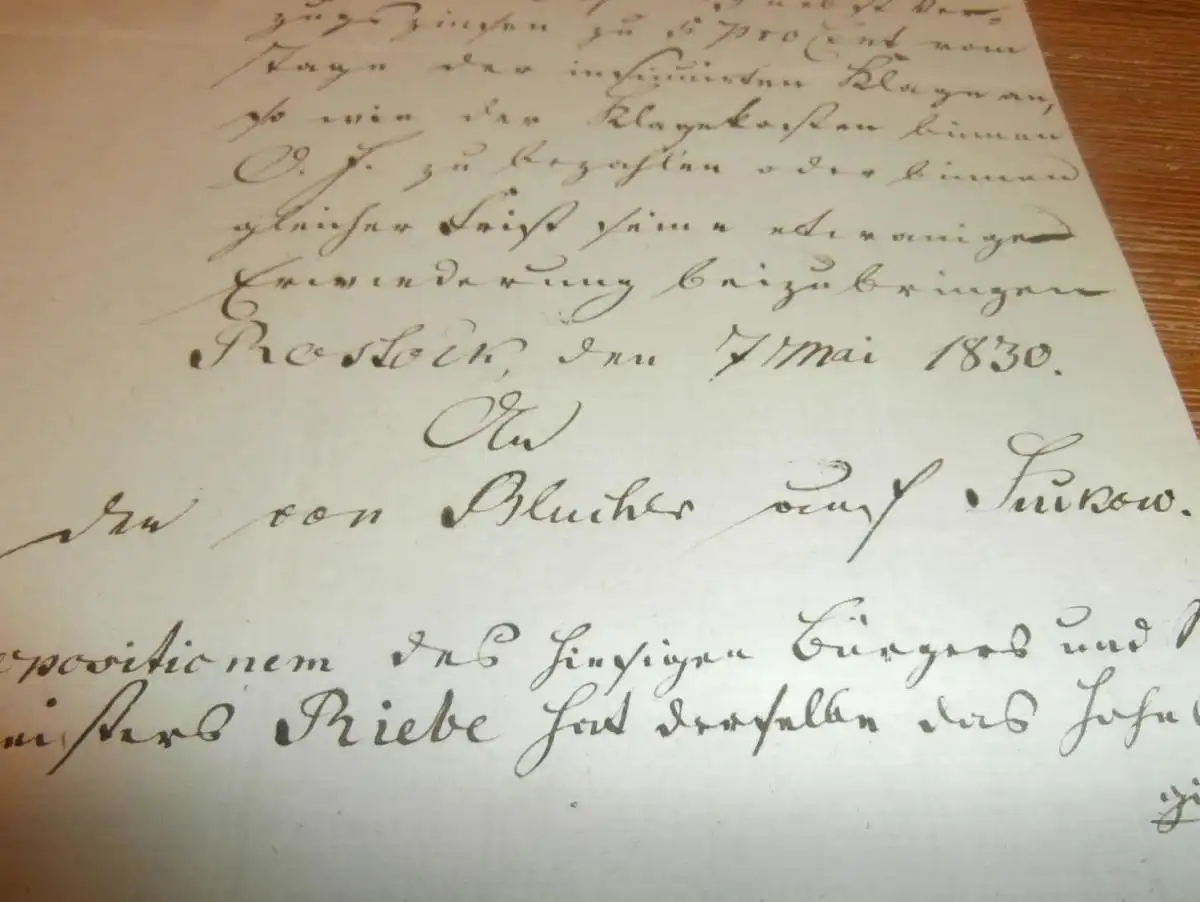 nebst Ver-
zugszinsen zu 5 pro Cent vom
Tage der insinuirten Klage an,
so wie der Klagekosten binnen
O. F. zu bezahlen oder binnen
gleicher Frist seine etwanigen
Erwiederung beizubringen
Rostock, den 7 Mai 1830.
An
den von Blucher auf Sukow.
positionem des hiesigen Bürgers und
meisters Riebe hat derselbe das Hohe